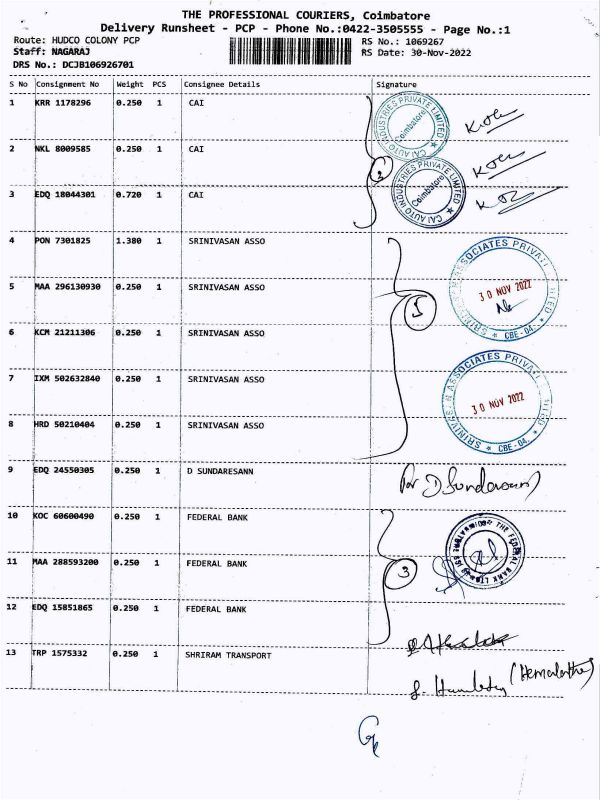 THE PROFESSIONAL COURIERS, Coimbatore
Delivery Runsheet - PCP - Phone No.:0422-3505555 - Page No.:1
Route: HUDCO COLONY PCP RS No.: 1069267
Staff: NAGARAJ RS Date: 30-Nov-2022
DRS No.: DCJB106926701
S No Consignment No Weight PCS Consignee Details Signature
1 KRR 1178296 0.250 1 CAI
CAI AUTO INDUSTRIES PRIVATE LIMITED
Coimbatore
2 NKL 8009585 0.250 1 CAI
CAI AUTO INDUSTRIES PRIVATE LIMITED
Coimbatore
3 EDQ 18044301 0.720 1 CAI
4 PON 7301825 1.380 1 SRINIVASAN ASSO
5 MAA 296130930 0.250 1 SRINIVASAN ASSO
5
30 NOV 2022
CBE-04.
6 KCM 21211306 0.250 1 SRINIVASAN ASSO
7 IXM 502632840 0.250 1 SRINIVASAN ASSO
30 NOV 2022
CBE-04.
8 HRD 50210404 0.250 1 SRINIVASAN ASSO
9 EDQ 24550305 0.250 1 D SUNDARESANN
10 KOC 60600490 0.250 1 FEDERAL BANK
THE FEDERAL BANK LTD
11 MAA 288593200 0.250 1 FEDERAL BANK
3
12 EDQ 15851865 0.250 1 FEDERAL BANK
13 TRP 1575332 0.250 1 SHRIRAM TRANSPORT